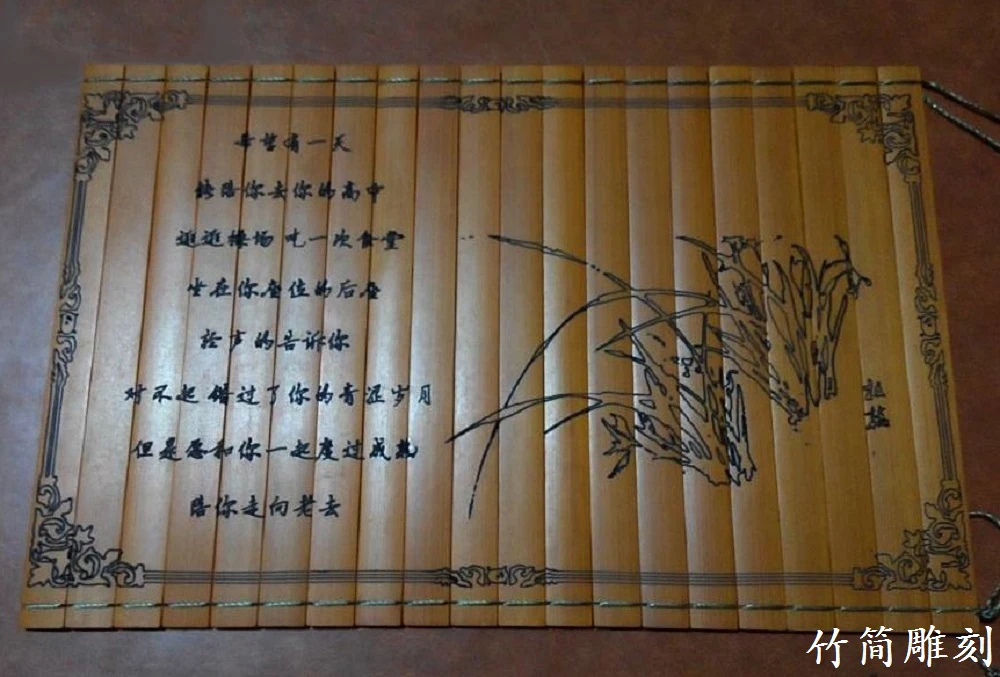 希望有一天
能陪你去你的高中
逛逛操场 吃一次食堂
坐在你座位的后座
轻声的告诉你
对不起 错过了你的青涩岁月
但是愿和你一起度过成熟
陪你走向老去
竹简雕刻